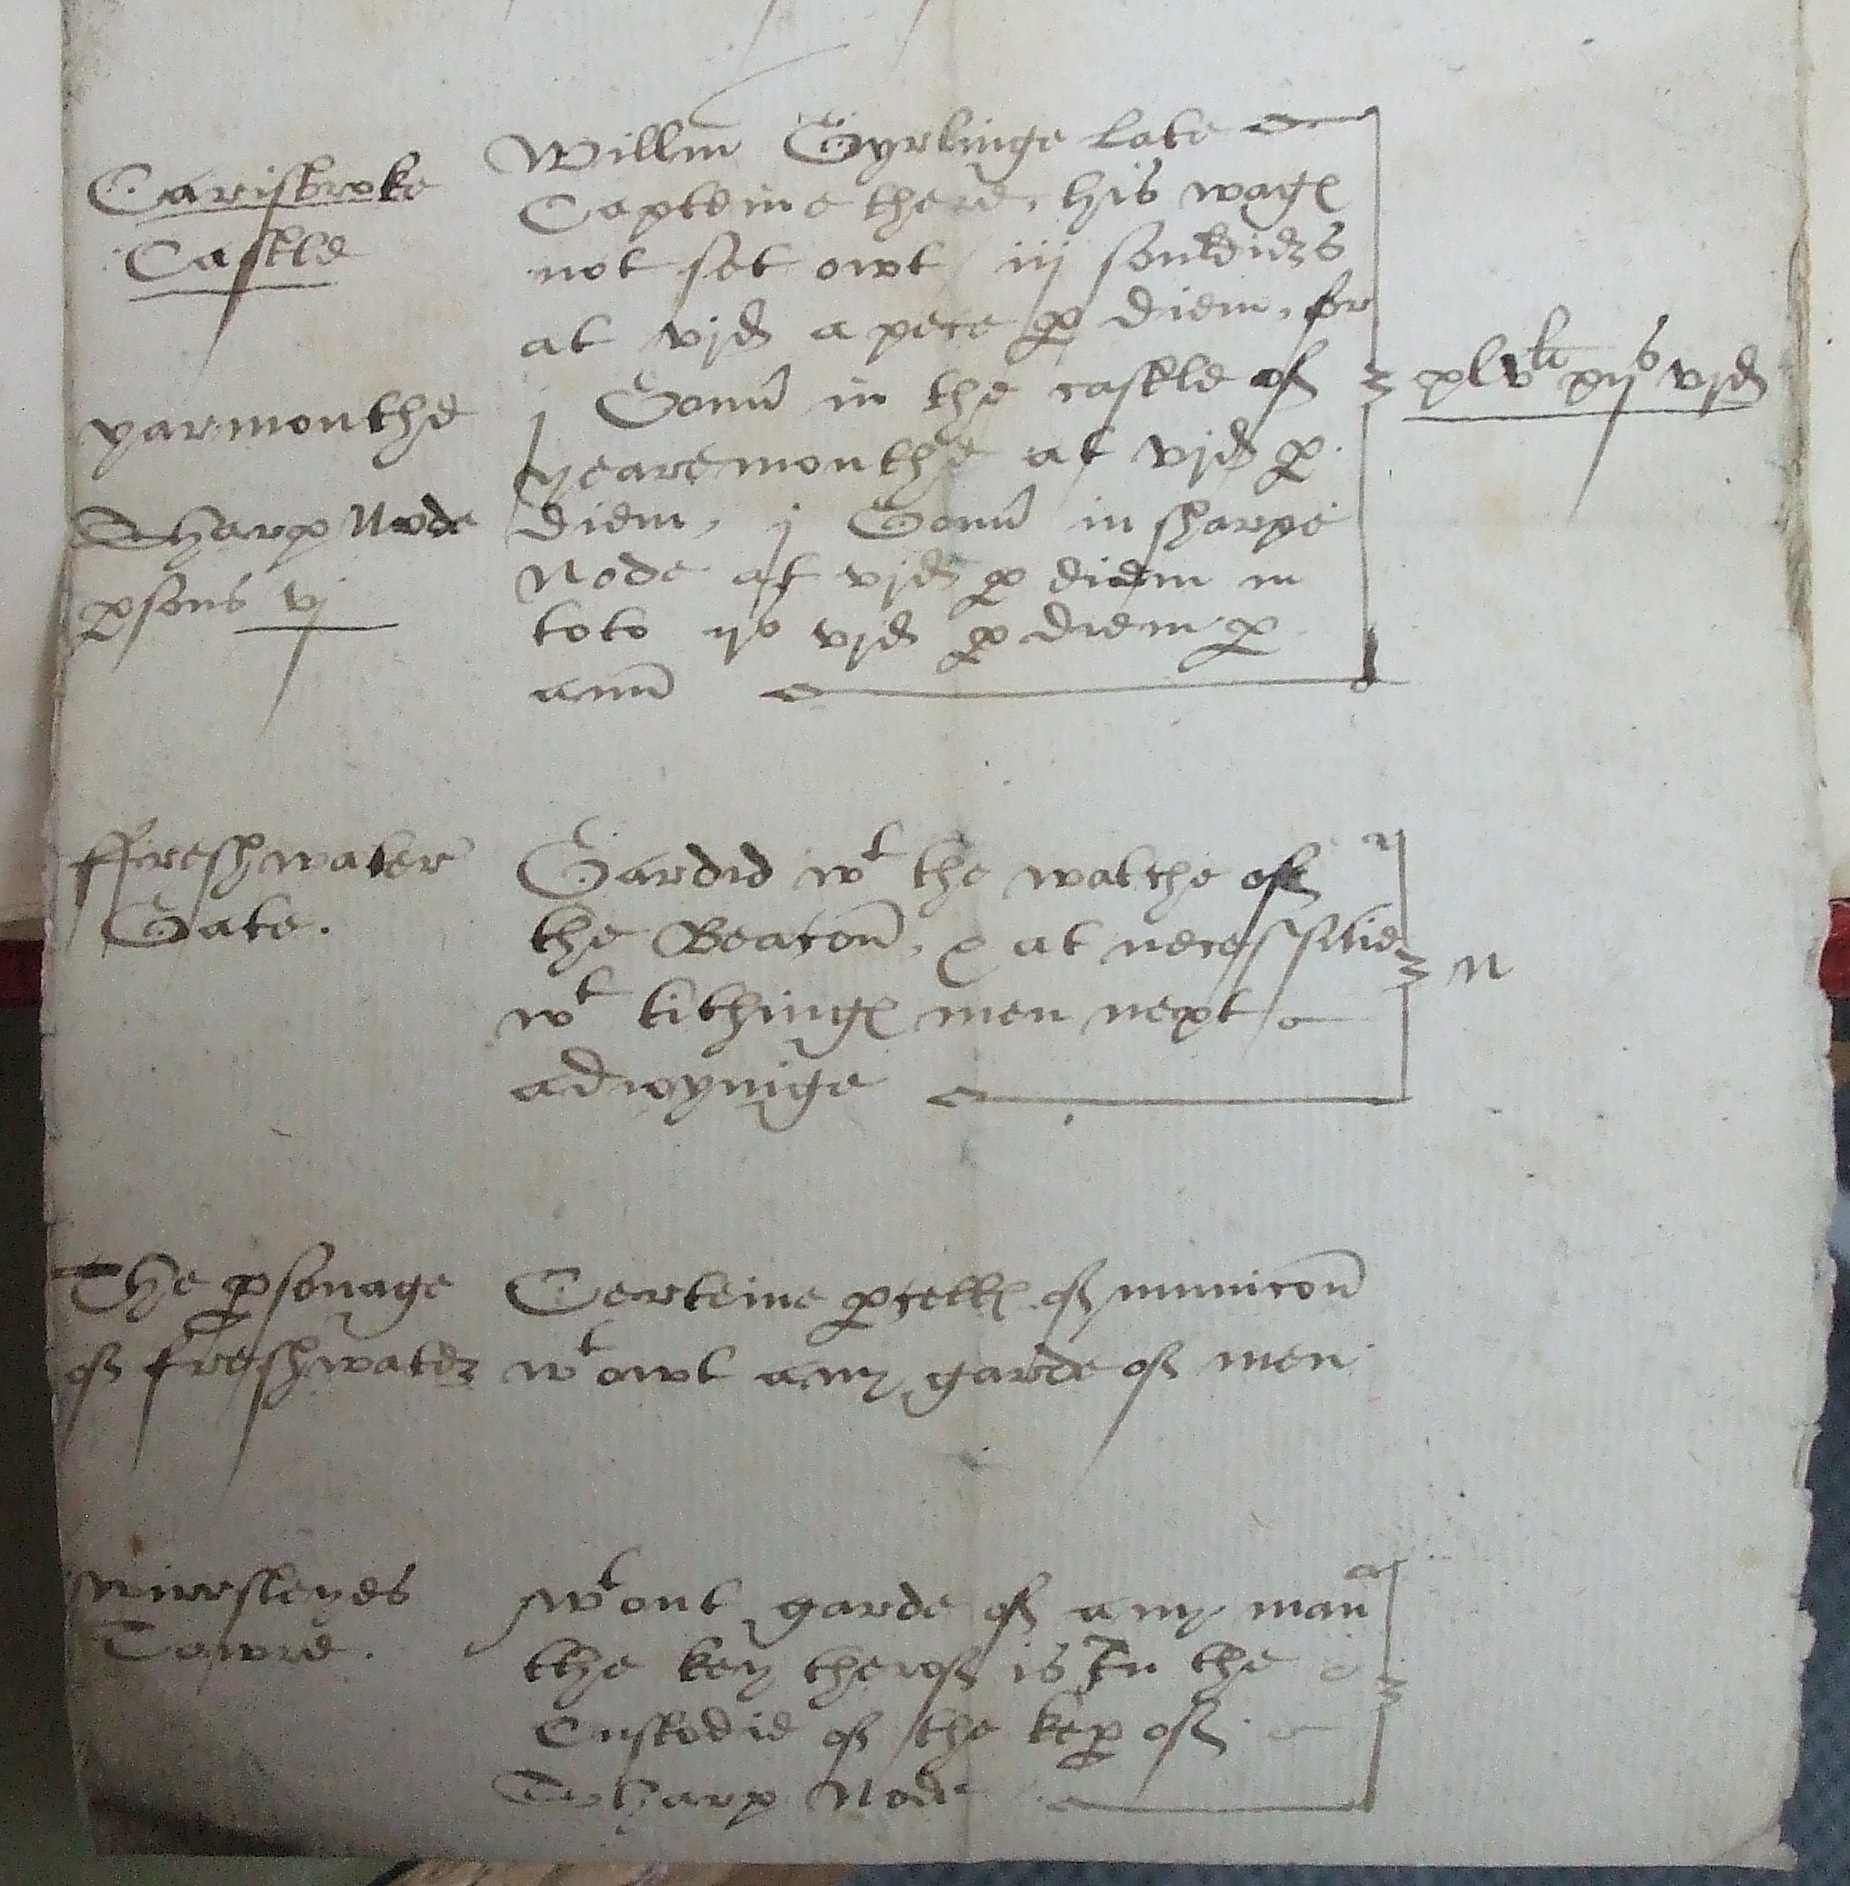 Carisbroke
Castle
Willm Gyrlinge late
Capteine there, his wages
not set owt / iij souldiers
at vjd a pece p diem, for
yarmouthe
j Gonn in the castle of
yearemouthe at vjd p
Sharp Node
psons vj
diem, j Gonn in sharpe
Node at vjd p diem in
toto ijs vjd p diem p
ann
xlvli xijs vjd
ffreshwater
Gate.
Gardid wt the watche of
the Beacon, & at necessitie
wt tithinges men next
adioyninge
n
The psonage
of freshwater
Certeine pcelles of municon
wtowt any garde of men
Towre.
wtout garde of any man
the key therof is In the
Custodie of the kep of
Sharp Node